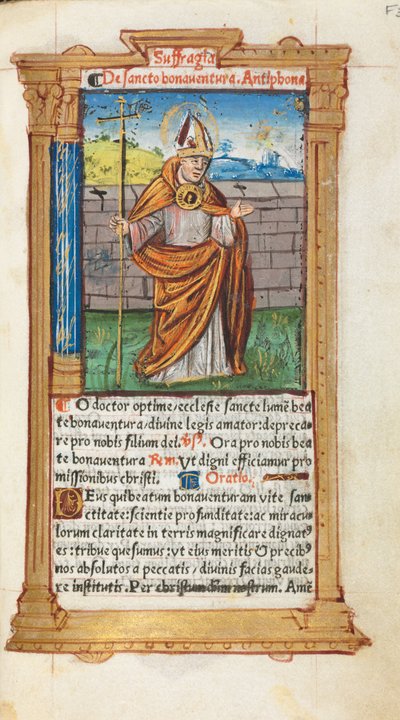 Suffragia
De sancto bonaventura. Antiphona
O doctor optime/ecclesie sancte lumẽ bea
te bonaventura/divine legis amator:depreca
re pro nobis filium dei. Ora pro nobis bea
te bonaventura Ut digni efficiamur pro
missionibus christi. Oratio.
Deus qui beatum bonaventuram vite san
ctitate:scientie profunditate:ac miracu
lorum claritate in terris magnificare dignatꝰ
es:tribue quesumus:ut eius meritis & precibꝰ
nos absolutos a peccatis/divinis facias gaude
re institutis. Per christum dñm nostrum. Amẽ